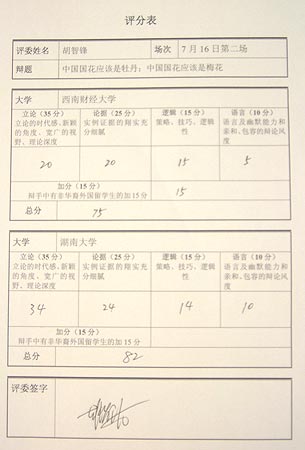 评分表
评委姓名 胡智锋 场次 7月16日第二场
辩题 中国国花应该是牡丹；中国国花应该是梅花
大学 西南财经大学
立论（35分） 论据（25分） 逻辑（15分） 语言（10分）
立论的时代感、新颖 实例证据的翔实充 策略、技巧、逻辑 语言及幽默能力和
的角度、宽广的视 分细腻 性 亲和、包容的辩论风
野、理论深度 度
20 20 15 5
加分（15分）
辩手中有非华裔外国留学生的加15分 15
总分 75
大学 湖南大学
立论（35分） 论据（25分） 逻辑（15分） 语言（10分）
立论的时代感、新颖 实例证据的翔实充 策略、技巧、逻辑 语言及幽默能力和
的角度、宽广的视 分细腻 性 亲和、包容的辩论风
野、理论深度 度
34 24 14 10
加分（15分）
辩手中有非华裔外国留学生的加15分
总分 82
评委签字